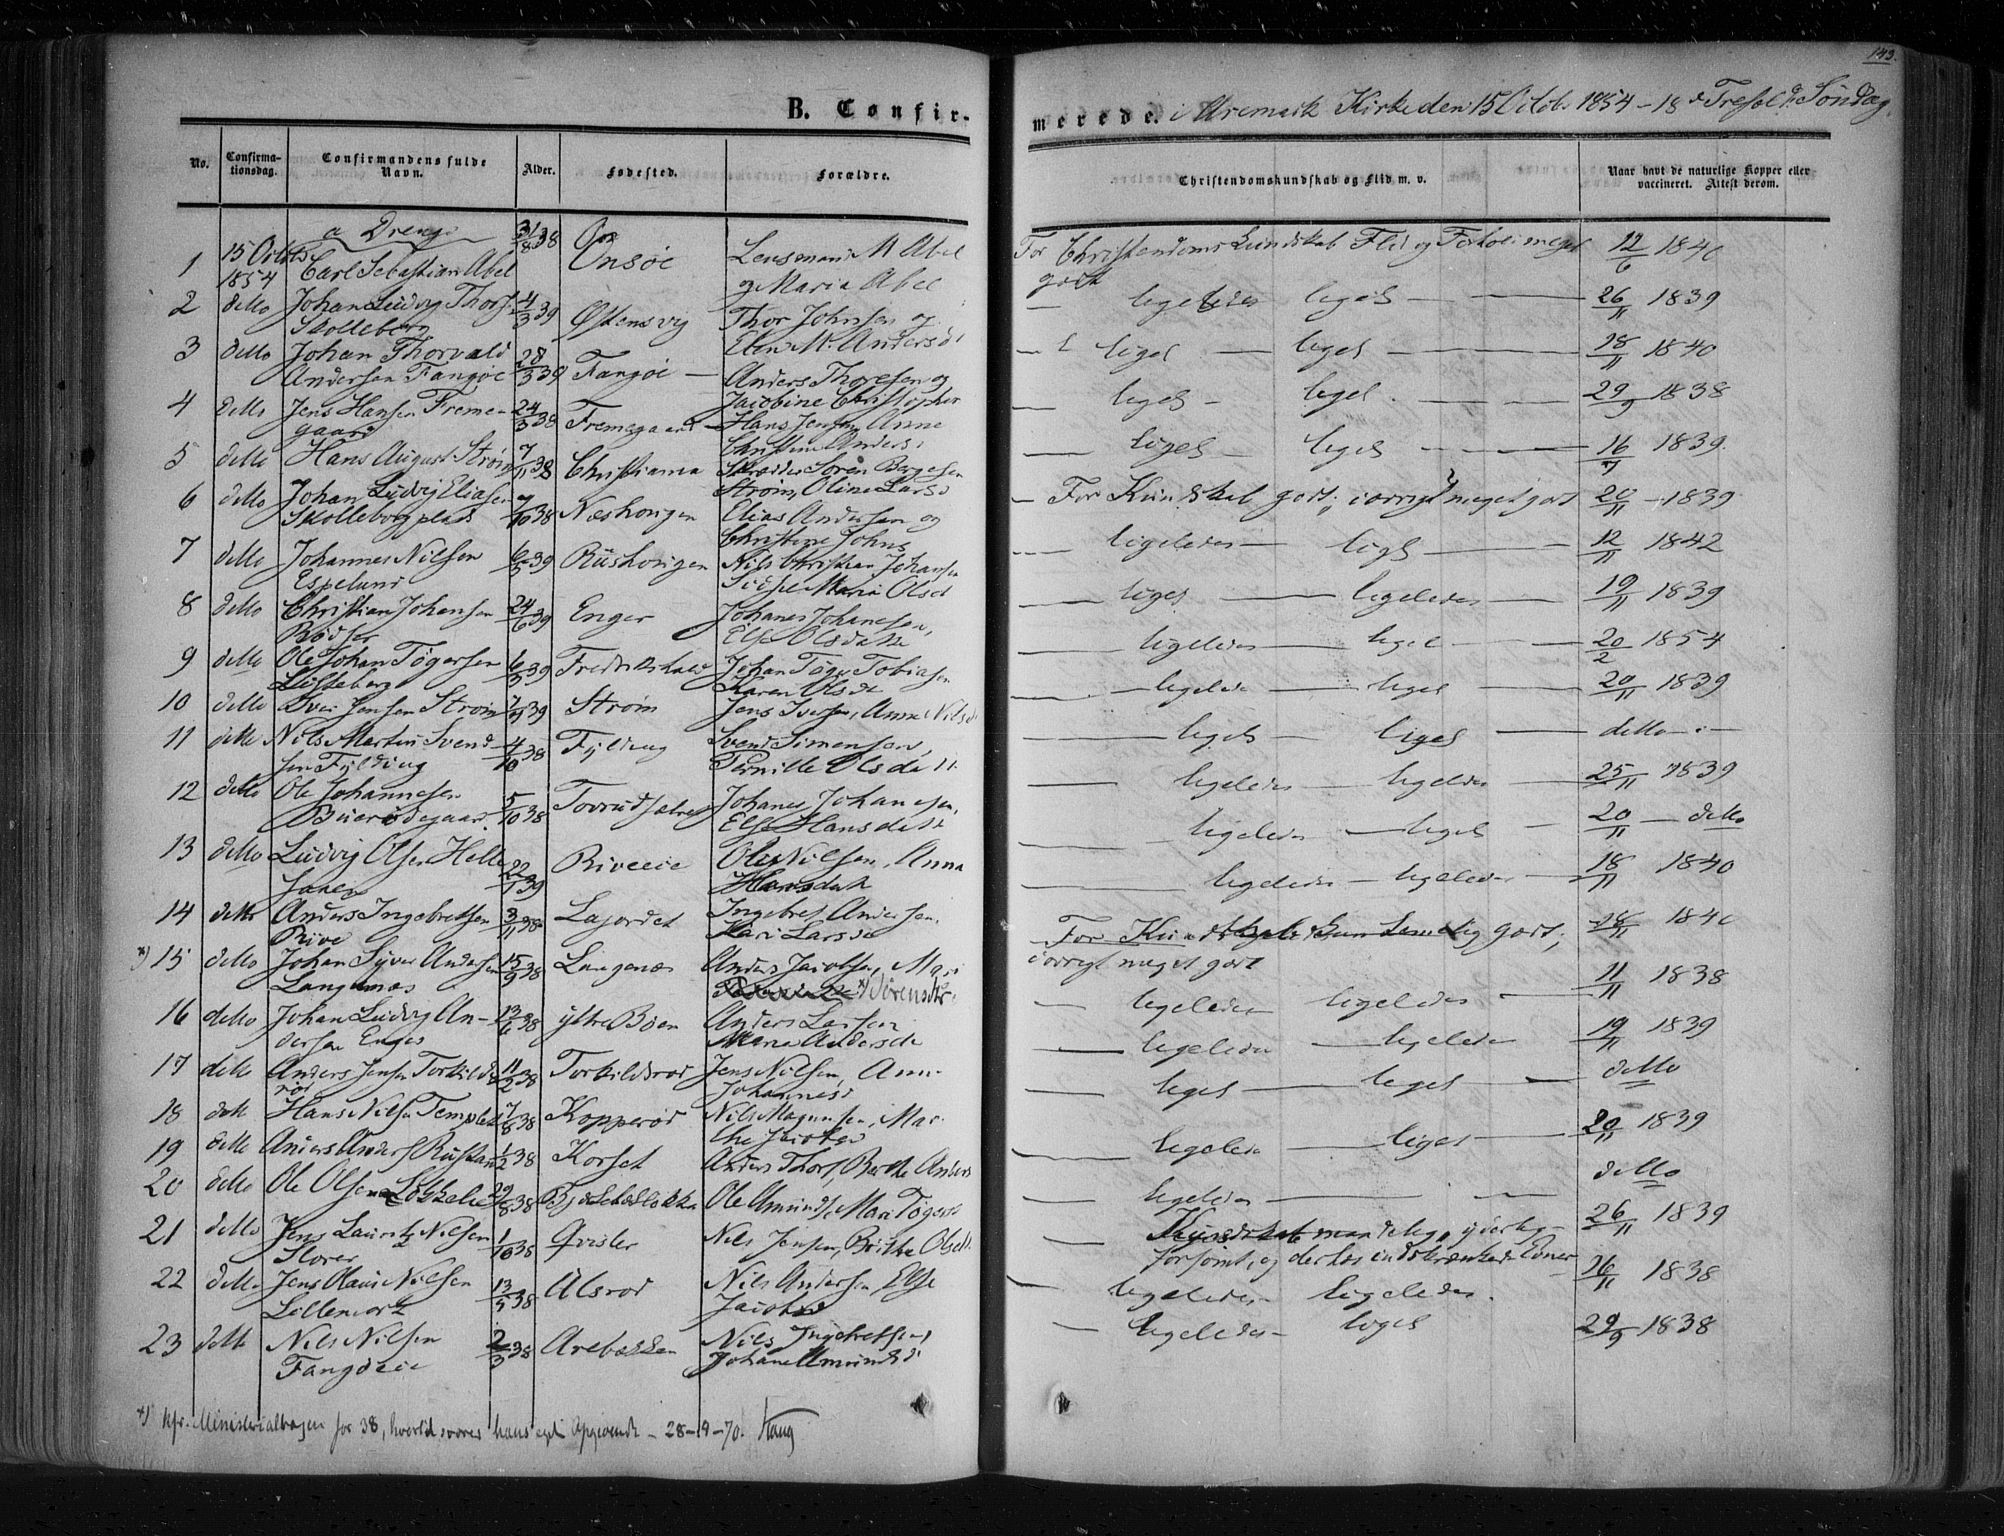 143.
B. Confir-
merede. i Aremark Kirke den 15 Octob. 1854 - 18 Søndag
No.
Confirma-
tionsdag.
Confirmandens fulde
Navn.
Alder.
Fødested.
Forældre.
Christendomskundskab og Flid m. v.
Naar havt de naturlige Kopper eller
vaccineret. Attest derom.
a Drenge
1 15 Octob 1854 Carl Sebastian Abel 31/8 38 Onsøe Lensmand M Abel og Maria Abel
For Christendoms Kundskab Flid og Forhold meget godt 12/6 1840
2 detto Johan Ludvig Thors. Skolleborg 4/3 39 Østensvig Thor Johnsen og Andersd
ligeledes liges 26/11 1839
3 detto Johan Thorvald Andersen Fangøe 28/3 39 Fangøe Anders Thoresen og Jacobine Christopher
liges liges 18/11 1840
4 detto Jens Hansen Fremegaard 24/3 38 Fremegaard Hans Jensen Anne Christine Anders
liges liges 29/9 1838
5 detto Hans August Strøm 7/11 38 Christiania Søren Børgesen Strøm, Oline Larsd
liges liges 16/7 1839
6 detto Johan Ludvig Eliasen Skolleborgplads 7/10 38 Næshougen Elias Andersen og Christine Johns
For Kundskab godt; iøvrigt meget godt 20/11 - 1839
7 detto Johannes Nilsen Espelund 6/5 39 Rüshougen Nils Christian Johansen Maria Olsd
ligeledes ligs 12/11 1842
8 detto Christian Johansen Rødser 24/6 39 Enger Johanes Johanesen, Else Olsdatte
liges ligeledes 19/11 1839
9 detto Ole Johan Tøgersen Lisleberg 6/5 39 Fredrikshald Johan Tøger Tobiasen Karen Olsd
ligeledes liges 20/2 1854
10 detto Iver Jensen Strøm 7/9 39 Strøm Jens Iversen, Anne Nilsd
ligeledes liges 20/11 1839
11 detto Nils Martin Svendsen Fylding 4/10 38 Fylding Svend Simensen, Pernille Olsdatt
liges liges detto
12 detto Ole Johannesen Buerødegaard 5/10 38 Johanes Johanesen, Else Hansdatt
ligeledes ligeledes 25/11 1839
13 detto Ludvig Olsen 22/1 39 Ole Nilsen, Anna Hansdatt
ligeledes liges 20/11 - detto
14 detto Anders Ingebretsen Rive 3/11 38 Lajordet Ingebret Andersen, Mari Larsd
ligeledes ligeledes 18/11 1840
*) 15 detto Johan Syver Andersen Langenæs 15/9 38 Langenæs Anders Jacobsen, Mari *) Sørensdtr
For Kundskab kun temelig godt; iøvrigt meget godt 28/11 1840
16 detto Johan Ludvig Andersen Enger 13/6 38 ytre Bøen Anders Larsen Maria Andersdt
ligeledes ligeledes 11/11 1838
17 detto Anders Jensen Torkildsrød 11/2 38 Torkildsrød Jens Nilsen, Anne Johannesd
ligeledes ligeledes 19/11 1839
18 dett Hans Nilsen Templet 17/8 38 Kopperød Nils Magnusen, Marthe Jacobsd
liges liges detto
19 detto Anders Anders Rustand 1/2 38 Korset Anders Thors, Berthe Anders
ligeledes liges 20/11 1839
20 detto Ole Olsen 29/8 38 Ole Amunds, Mari Tøgers
ligeledes detto
21 detto Jens Lauritz Nilsen Storer 1/10 38 Qvisler Nils Jensen, Britha Olsdt
Kundskab mandelig, yderlig forsømt, og derhos indskrænkede Evner 26/11 1839
22 detto Jens Olaus Nilsen Lillemork 13/5 38 Alsrød Nils Andersen, Else Jacobsd
ligeledes ligeledes. 26/11 1838
23 detto Nils Nilsen 2/3 38 Arebækken Nils Ingebretsen, Johane Amundsd
ligeledes liges 29/9 1838
*) kfr. Ministerialbogen for 38, hvortil svarer hans eget Opgivende - 28-19-70. Haug